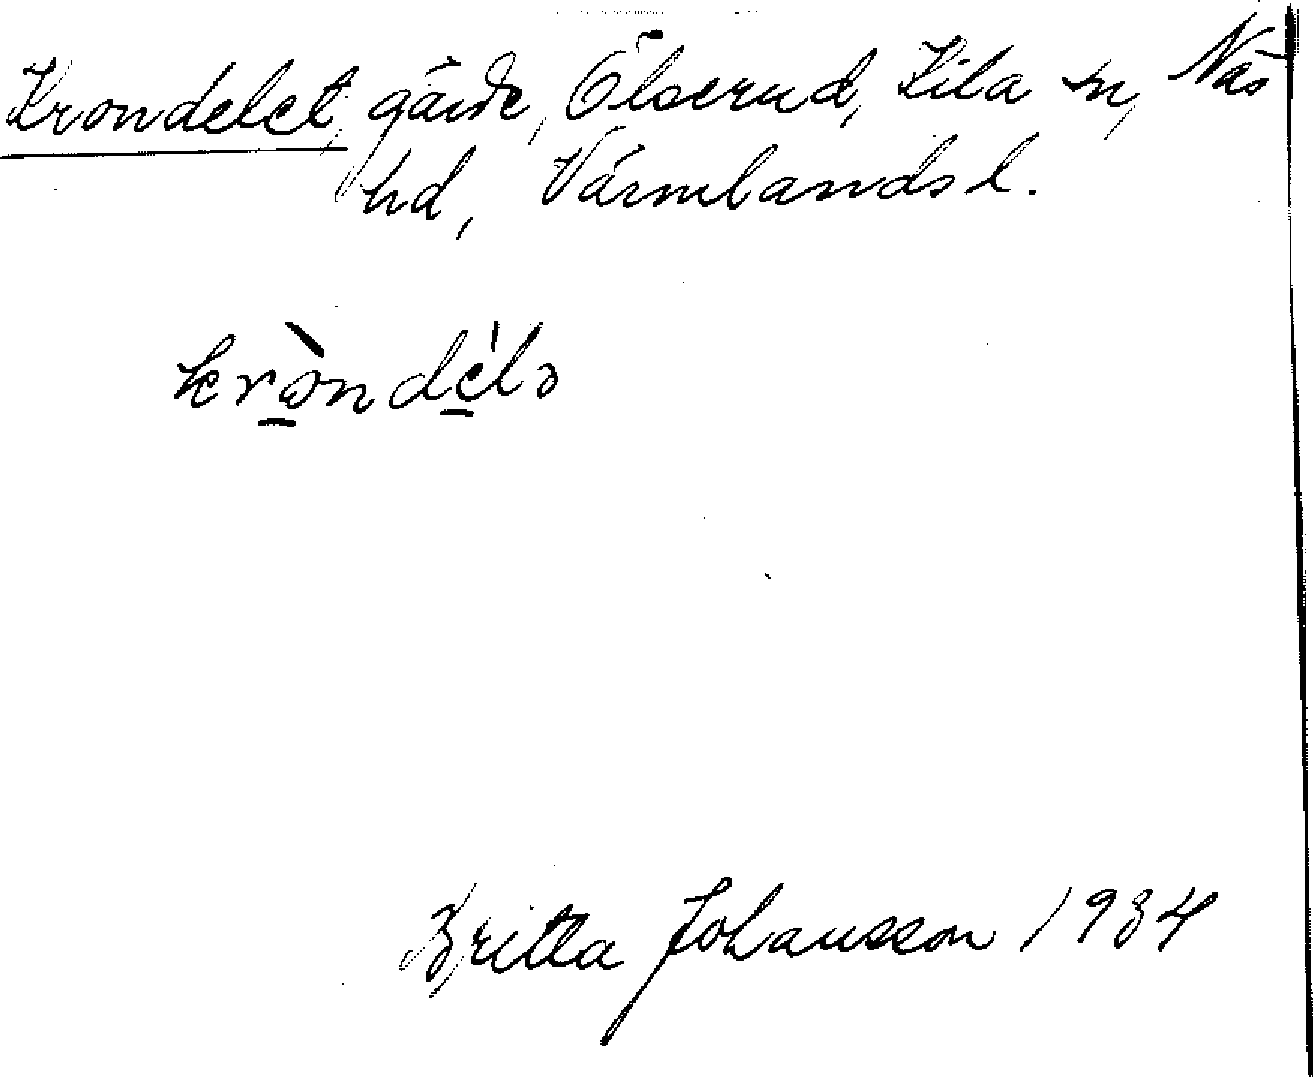 Krondelet, gärde, Ölserud, Kila sn, Näs
hd, Värmlands l.
kròndélə
Britta Johansson 1934